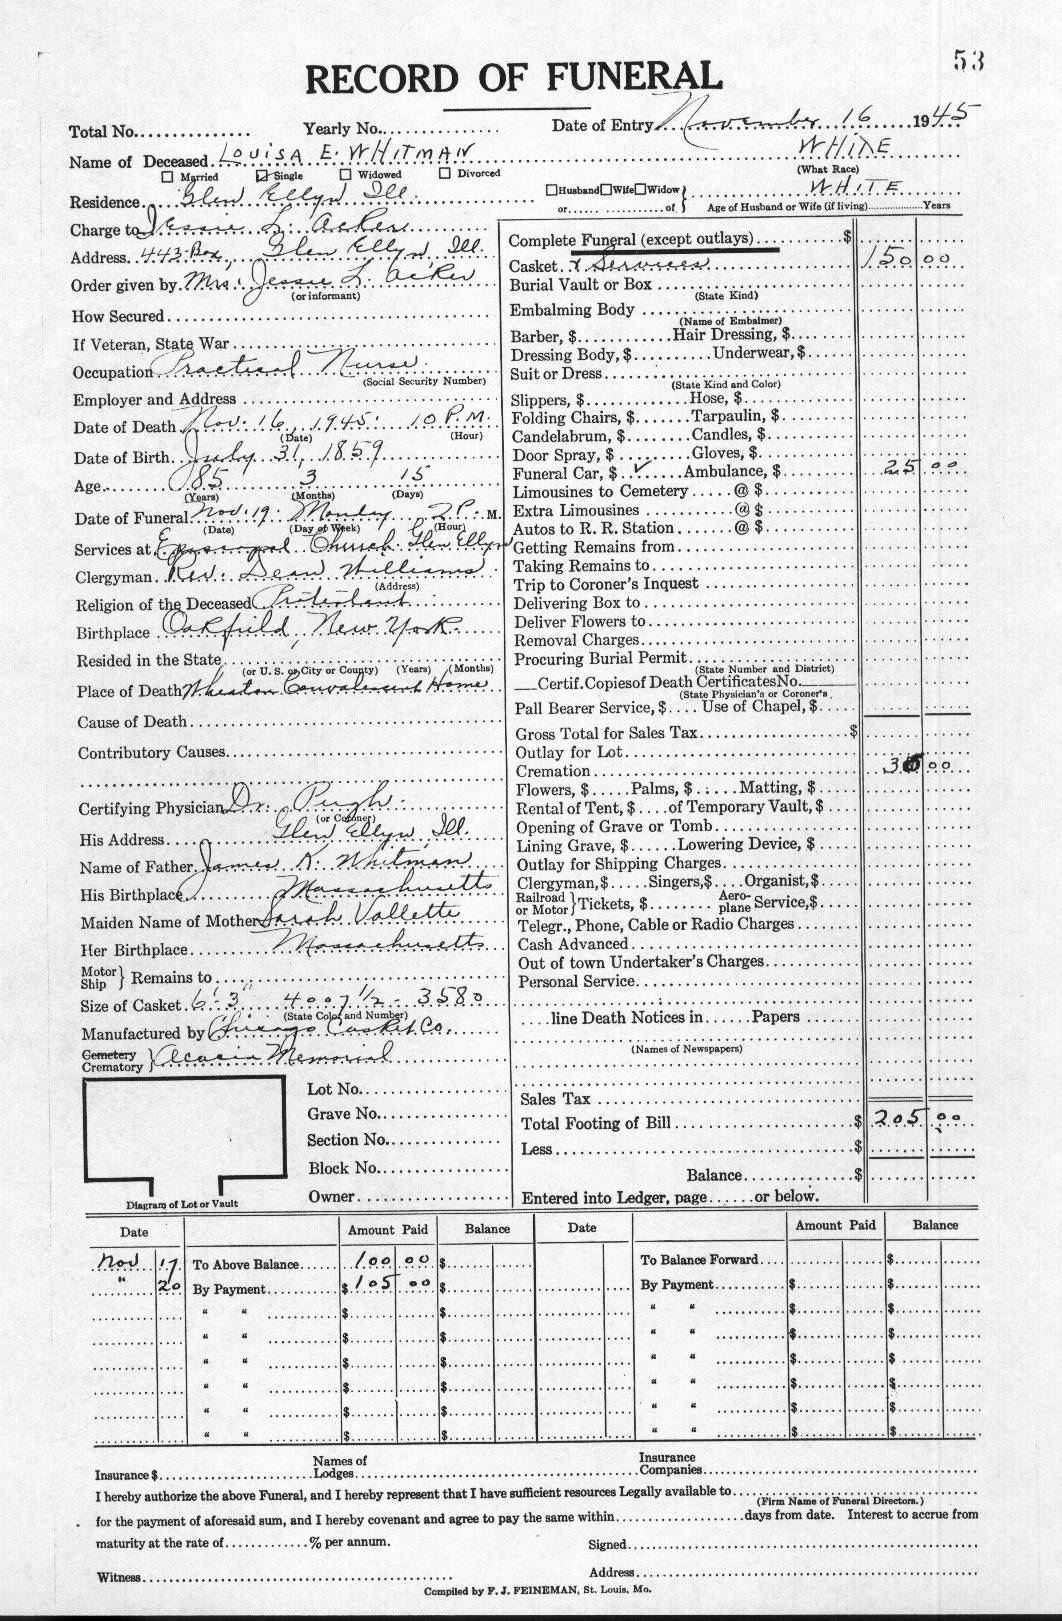 53
RECORD OF FUNERAL
Total No............... Yearly No............... Date of Entry November 16 1945
Name of Deceased LOUISA E. WHITMAN WHITE
☐ Married ☑ Single ☐ Widowed ☐ Divorced (What Race)
Residence Glen Ellyn Ill. ☐Husband☐Wife☐Widow} WHITE
or...... ............of } Age of Husband or Wife (if living)............Years
Charge to Jessie L. Acker
Address 443-Box, Glen Ellyn, Ill.
Order given by Mrs. Jessie L. Acker
(or informant)
How Secured
If Veteran, State War
Occupation Practical Nurse
(Social Security Number)
Employer and Address
Date of Death Nov. 16, 1945. 10 P.M.
(Date) (Hour)
Date of Birth July 31, 1859
Age 85 3 15
(Years) (Months) (Days)
Date of Funeral Nov. 19. Monday 2 P. M.
(Date) (Day of Week) (Hour)
Services at Episcopal Church Glen Ellyn
Clergyman Rev. Dean Williams
(Address)
Religion of the Deceased Protestant
Birthplace Oakfield, New York.
Resided in the State
(or U. S. or City or County) (Years) (Months)
Place of Death Wheaton Convalescent Home
Cause of Death
Contributory Causes
Certifying Physician Dr. Pugh.
(or Coroner)
His Address Glen Ellyn, Ill.
Name of Father James K. Whitman
His Birthplace Massachusetts
Maiden Name of Mother Sarah Vallette
Her Birthplace Massachusetts
Motor Ship } Remains to
Size of Casket 6-3" 4007 1/2 - 3580
(State Color and Number)
Manufactured by Chicago Casket Co.
Cemetery
Crematory } Acacia Memorial
Lot No.
Grave No.
Section No.
Block No.
Owner
Diagram of Lot or Vault
Complete Funeral (except outlays) $
Casket & Services 150 00
Burial Vault or Box
(State Kind)
Embalming Body
(Name of Embalmer)
Barber, $............Hair Dressing, $
Dressing Body, $..........Underwear, $
Suit or Dress
(State Kind and Color)
Slippers, $............Hose, $
Folding Chairs, $.......Tarpaulin, $
Candelabrum, $........Candles, $
Door Spray, $.........Gloves, $
Funeral Car, $ ✓ Ambulance, $ 25 00
Limousines to Cemetery.....@ $
Extra Limousines ...........@ $
Autos to R. R. Station.......@ $
Getting Remains from
Taking Remains to
Trip to Coroner's Inquest
Delivering Box to
Deliver Flowers to
Removal Charges
Procuring Burial Permit
(State Number and District)
__Certif. Copies of Death Certificates No.
(State Physician's or Coroner's
Pall Bearer Service, $.... Use of Chapel, $
Gross Total for Sales Tax $
Outlay for Lot
Cremation 30 00
Flowers, $.....Palms, $.....Matting, $
Rental of Tent, $....of Temporary Vault, $
Opening of Grave or Tomb
Lining Grave, $......Lowering Device, $
Outlay for Shipping Charges
Clergyman, $.....Singers, $....Organist, $
Railroad or Motor } Tickets, $........ Aeroplane Service, $
Telegr., Phone, Cable or Radio Charges
Cash Advanced
Out of town Undertaker's Charges
Personal Service
....line Death Notices in......Papers
(Names of Newspapers)
Sales Tax
Total Footing of Bill $ 205 00
Less $
Balance $
Entered into Ledger, page......or below.
Date Amount Paid Balance Date Amount Paid Balance
Nov 17 To Above Balance 100 00 $ To Balance Forward $
" 20 By Payment $ 105 00 $ By Payment $ $
" " $ $ " " $ $
" " $ $ " " $ $
" " $ $ " " $ $
" " $ $ " " $ $
" " $ $ " " $ $
" " $ $ " " $ $
Insurance $ Names of Lodges Insurance Companies
I hereby authorize the above Funeral, and I hereby represent that I have sufficient resources Legally available to
(Firm Name of Funeral Directors.)
for the payment of aforesaid sum, and I hereby covenant and agree to pay the same within....................days from date. Interest to accrue from
maturity at the rate of.............% per annum. Signed
Witness Address
Compiled by F. J. FEINEMAN, St. Louis, Mo.